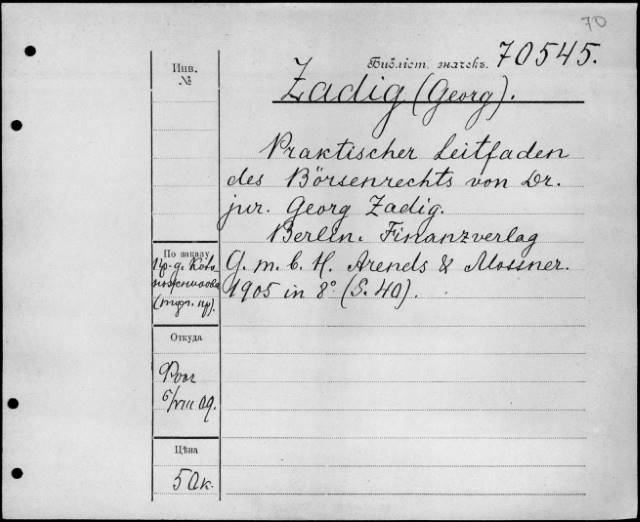 70
Библіот. значекъ. 70545.
Zadig (Georg).
Praktischer Leitfaden
des Börsenrechts von Dr.
jur. Georg Zadig.
Berlin. Finanzverlag
G. m. b. H. Arends & Mossner.
1905 in 8° (S. 40).
Инв.
№
По заказу
пр-д.
(торг. пр).
Откуда
6/VIII 09.
Цѣна
50к.